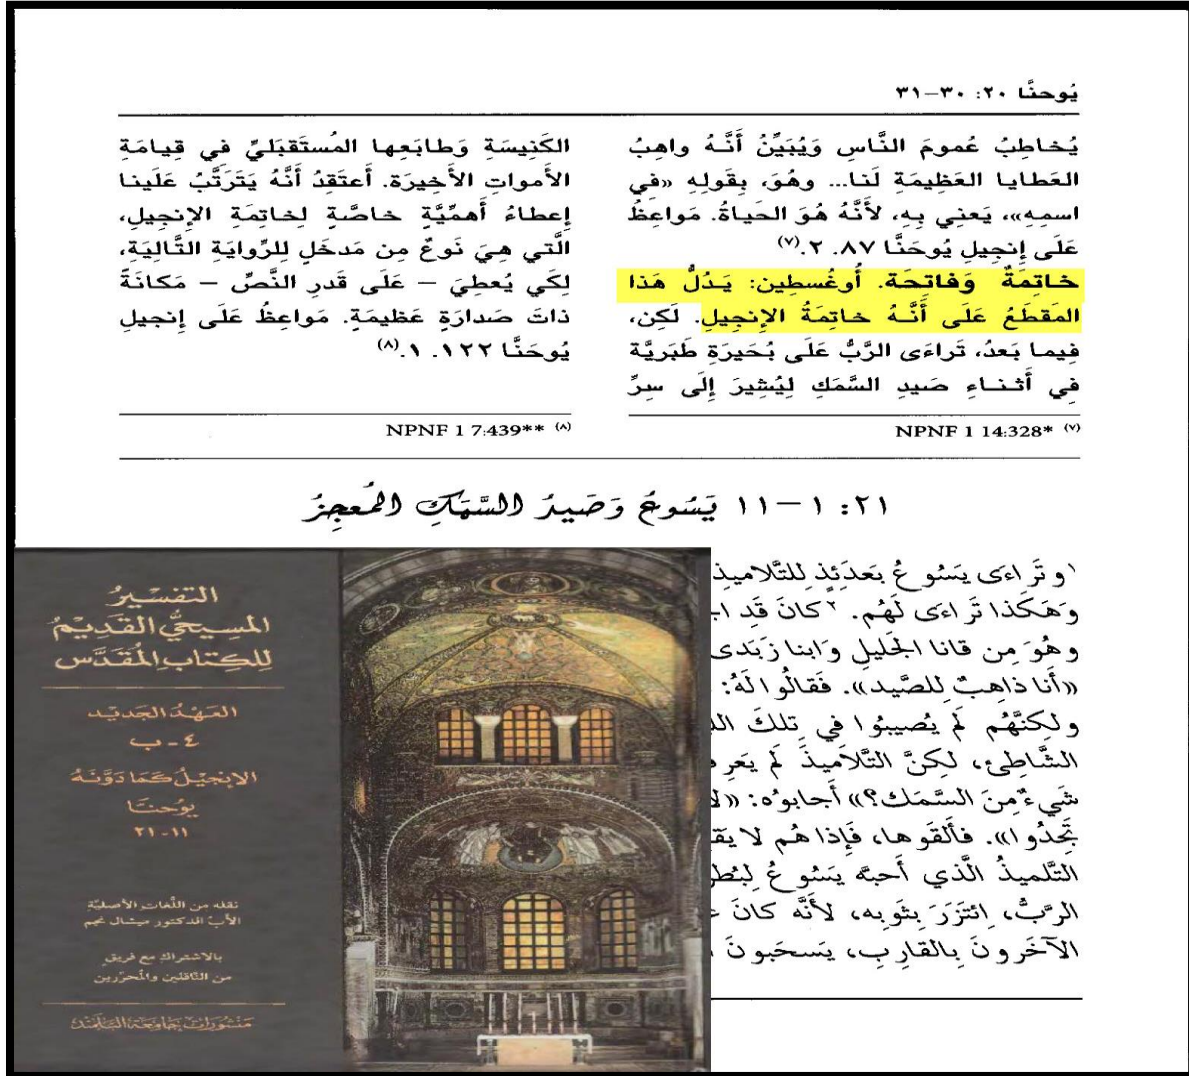 يُوحنَّا ٢٠: ٣٠-٣١
يُخاطِبُ عُمومَ النَّاسِ وَيُبَيِّنُ أَنَّهُ واهِبُ
العَطايا العَظِيمَةِ لَنا... وهُوَ، بِقَولِهِ «في
اسمِهِ»، يَعني بِهِ، لأَنَّهُ هُوَ الحَياةُ. مَواعِظُ
عَلَى إِنجيلِ يُوحَنَّا ٨٧. ٢.(٧)
خاتِمَةٌ وَفاتحَة. أُوغُسطِين: يَدُلُّ هَذا
المَقطَعُ عَلَى أَنَّهُ خاتِمَةُ الإِنجيلِ. لَكِن،
فِيما بَعدُ، تَراءَى الرَّبُّ عَلَى بُحَيرَةِ طَبَرِيَّة
فِي أَثناءِ صَيدِ السَّمَكِ لِيُشِيرَ إِلَى سِرِّ
(٧) NPNF 1 14:328*
الكَنِيسَةِ وَطابَعِها المُستَقبَلِيِّ في قِيامَةِ
الأَمواتِ الأَخِيرَة. أَعتَقِدُ أَنَّهُ يَتَرَتَّبُ عَلَينا
إِعطاءُ أَهمِّيَّةٍ خاصَّةٍ لِخاتِمَةِ الإِنجيلِ،
الَّتي هِيَ نَوعٌ مِن مَدخَلٍ لِلرِّوايَةِ التَّالِيَةِ،
لِكَي يُعطِيَ – عَلَى قَدرِ النَّصِّ – مَكانَةً
ذاتَ صَدارَةٍ عَظِيمَةٍ. مَواعِظُ عَلَى إِنجيلِ
يُوحَنَّا ١٢٢. ١.(٨)
(٨) NPNF 1 7:439**
٢١: ١-١١ يَسُوعُ وَصَيدُ السَّمَكِ المُعجِزُ
١وتَراءَى يَسُوعُ بَعدَئِذٍ لِلتَّلاميذِ
وهَكَذا تَراءَى لَهُم. ٢كانَ قَدِ
وهُوَ مِن قانا الجَليلِ وَابنا زَبَدَى
«أَنا ذاهِبٌ لِلصَّيد». فَقالُوا لَهُ:
ولكِنَّهُم لَم يُصيبُوا في تِلكَ
الشَّاطئ، لكِنَّ التَّلاميذَ لَم
شَيءٌ مِنَ السَّمَك؟» أَجابوُه:
تَجِدُوا». فأَلقَوها، فَإِذا هُم لا
التَّلميذُ الَّذي أَحبَّه يَسُوعُ
الرَّبُّ، ائتَزَرَ بِثَوبِه، لأَنَّه كانَ
الآخَرونَ بِالقارِبِ، يَسحَبونَ
التفسيرُ
المسيحيُّ القديمُ
للكِتابِ المُقَدَّس
العَهْدُ الجَديد
٤-ب
الإنجيلُ كمَا دَوَّنَهُ
يوُحنَا
١١-٢١
نقله من اللّغات الأصليّة
الأب الدكتور ميشال نجم
بالاشتراك مع فريق
من النّاقلين والمُحرّرين
منشورات جامعة البلمند